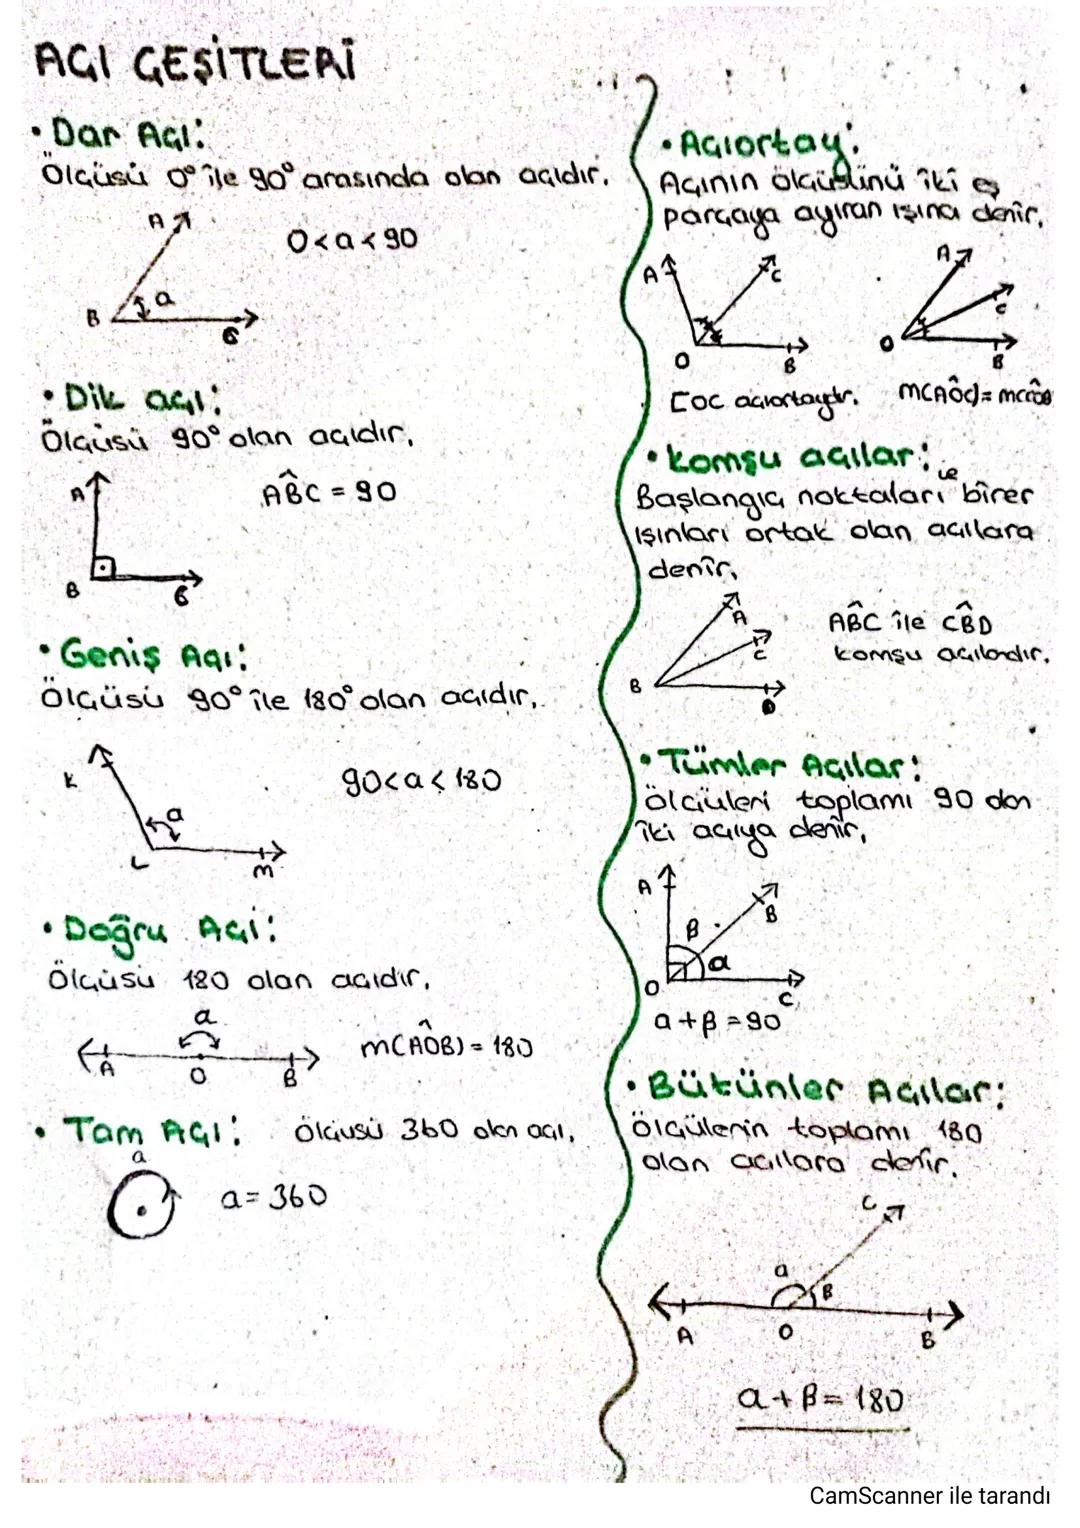 AÇI ÇEŞİTLERİ
• Dar Açı:
Ölçüsü 0° ile 90° arasında olan açıdır.
A
0<a<90
a
B
C
• Dik açı:
Ölçüsü 90° olan açıdır.
A
ABC = 90
B
C
• Geniş Açı:
Ölçüsü 90° ile 180° olan açıdır.
K
90<a<180
a
L
M
• Doğru Açı:
Ölçüsü 180 olan açıdır.
a
m(AOB) = 180
A
O
B
• Tam Açı: Ölçüsü 360 olan açı.
a
a = 360
• Açıortay:
Açının ölçüsünü iki eş
parçaya ayıran ışına denir.
A
C
O
B
A
C
O
B
[OC açıortaydır.
• Komşu açılar:
Başlangıç noktaları ve birer
ışınları ortak olan açılara
denir.
A
C
B
D
ABC ile CBD
komşu açılardır.
• Tümler Açılar:
Ölçüleri toplamı 90 olan
iki açıya denir.
A
B
β
a
O
C
a+β=90
• Bütünler Açılar:
Ölçülerin toplamı 180
olan açılara denir.
C
a
β
A
O
B
a+β= 180
CamScanner ile tarandı